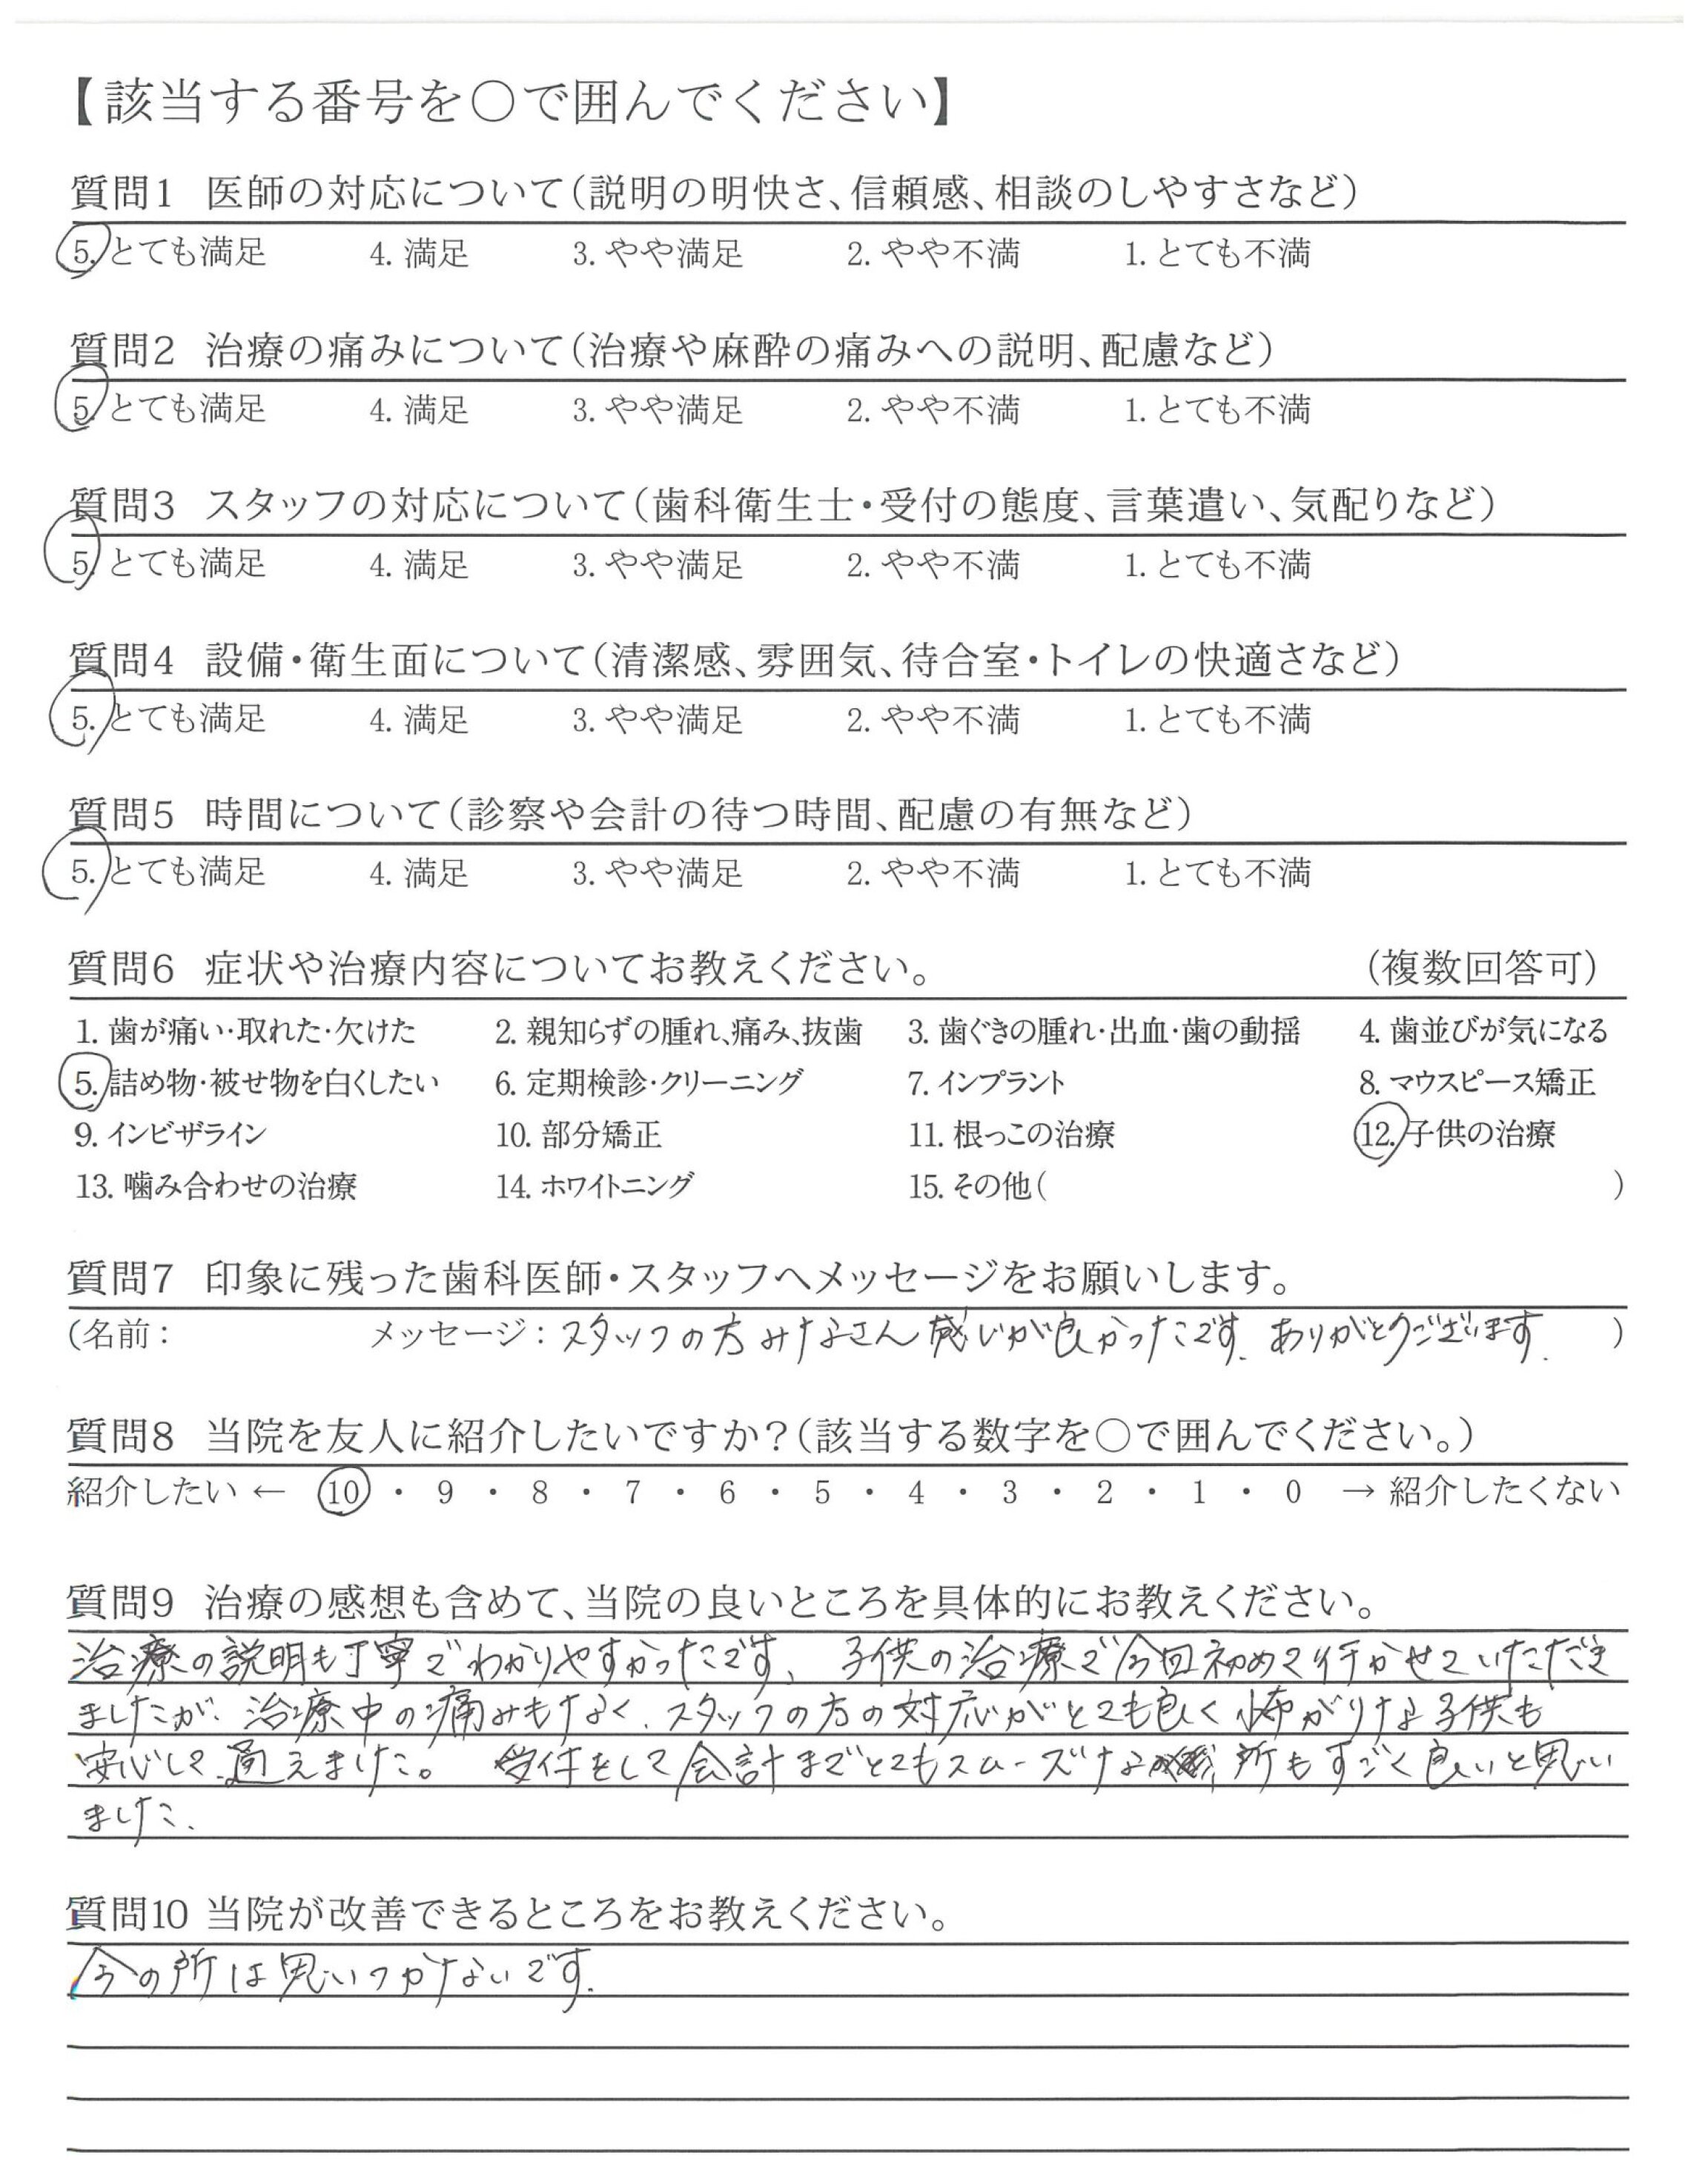 【該当する番号を○で囲んでください】
質問1 医師の対応について(説明の明快さ、信頼感、相談のしやすさなど)
5. とても満足 4. 満足 3. やや満足 2. やや不満 1. とても不満
質問2 治療の痛みについて(治療や麻酔の痛みへの説明、配慮など)
5. とても満足 4. 満足 3. やや満足 2. やや不満 1. とても不満
質問3 スタッフの対応について(歯科衛生士・受付の態度、言葉遣い、気配りなど)
5. とても満足 4. 満足 3. やや満足 2. やや不満 1. とても不満
質問4 設備・衛生面について(清潔感、雰囲気、待合室・トイレの快適さなど)
5. とても満足 4. 満足 3. やや満足 2. やや不満 1. とても不満
質問5 時間について(診察や会計の待つ時間、配慮の有無など)
5. とても満足 4. 満足 3. やや満足 2. やや不満 1. とても不満
質問6 症状や治療内容についてお教えください。 (複数回答可)
1. 歯が痛い・取れた・欠けた 2. 親知らずの腫れ、痛み、抜歯 3. 歯ぐきの腫れ・出血・歯の動揺 4. 歯並びが気になる
5. 詰め物・被せ物を白くしたい 6. 定期検診・クリーニング 7. インプラント 8. マウスピース矯正
9. インビザライン 10. 部分矯正 11. 根っこの治療 12. 子供の治療
13. 噛み合わせの治療 14. ホワイトニング 15. その他( )
質問7 印象に残った歯科医師・スタッフへメッセージをお願いします。
(名前: メッセージ: スタッフの方みなさん感じが良かったです. ありがとうございます. )
質問8 当院を友人に紹介したいですか?(該当する数字を○で囲んでください。)
紹介したい ← 10 ・ 9 ・ 8 ・ 7 ・ 6 ・ 5 ・ 4 ・ 3 ・ 2 ・ 1 ・ 0 → 紹介したくない
質問9 治療の感想も含めて、当院の良いところを具体的にお教えください。
治療の説明も丁寧でわかりやすかったです、 子供の治療で今回初めて行かせていただき
ましたが、治療中の痛みもなく、スタッフの方の対応がとても良く怖がりな子供も
安心して通えました。 受付をして会計までとてもスムーズな所もすごく良いと思い
ました.
質問10 当院が改善できるところをお教えください。
今の所は思いつかないです.